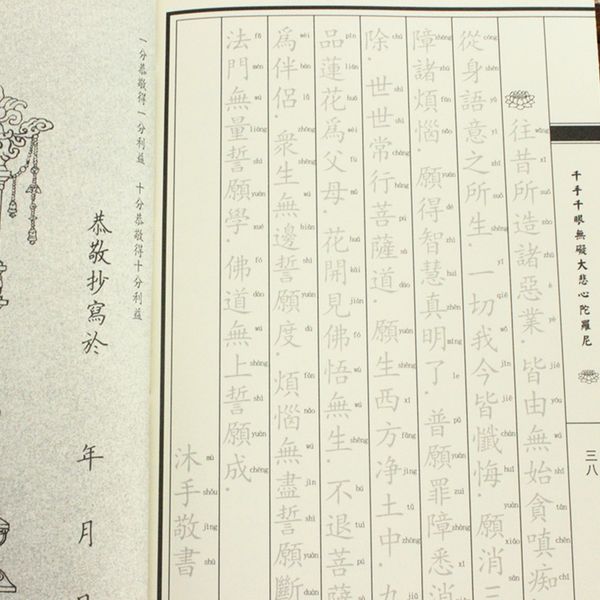 千手千眼無礙大悲心陀羅尼
三八
往昔所造諸惡業.皆由無始貪嗔痴
從身語意之所生.一切我今皆懺悔.願消三
障諸煩惱.願得智慧真明了.普願罪障悉消
除.世世常行菩薩道.願生西方净土中.九
品蓮花爲父母.花開見佛悟無生.不退菩薩
爲伴侶.衆生無邊誓願度.煩惱無盡誓願斷
法門無量誓願學.佛道無上誓願成.
沐手敬書
一分恭敬得一分利益 十分恭敬得十分利益
恭敬抄寫於 年 月